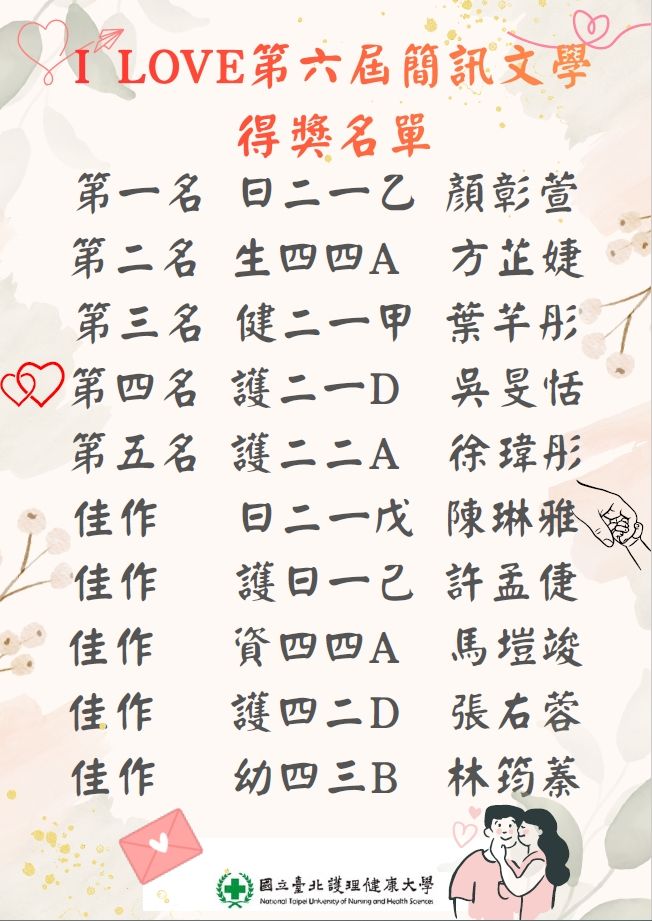 I LOVE第六屆簡訊文學
得獎名單
第一名 日二一乙 顏彰萱
第二名 生四四A 方芷婕
第三名 健二一甲 葉芊彤
第四名 護二一D 吳旻恬
第五名 護二二A 徐瑋彤
佳作 日二一戊 陳琳雅
佳作 護日一己 許孟倢
佳作 資四四A 馬塏竣
佳作 護四二D 張右蓉
佳作 幼四三B 林筠蓁
國立臺北護理健康大學
National Taipei University of Nursing and Health Sciences